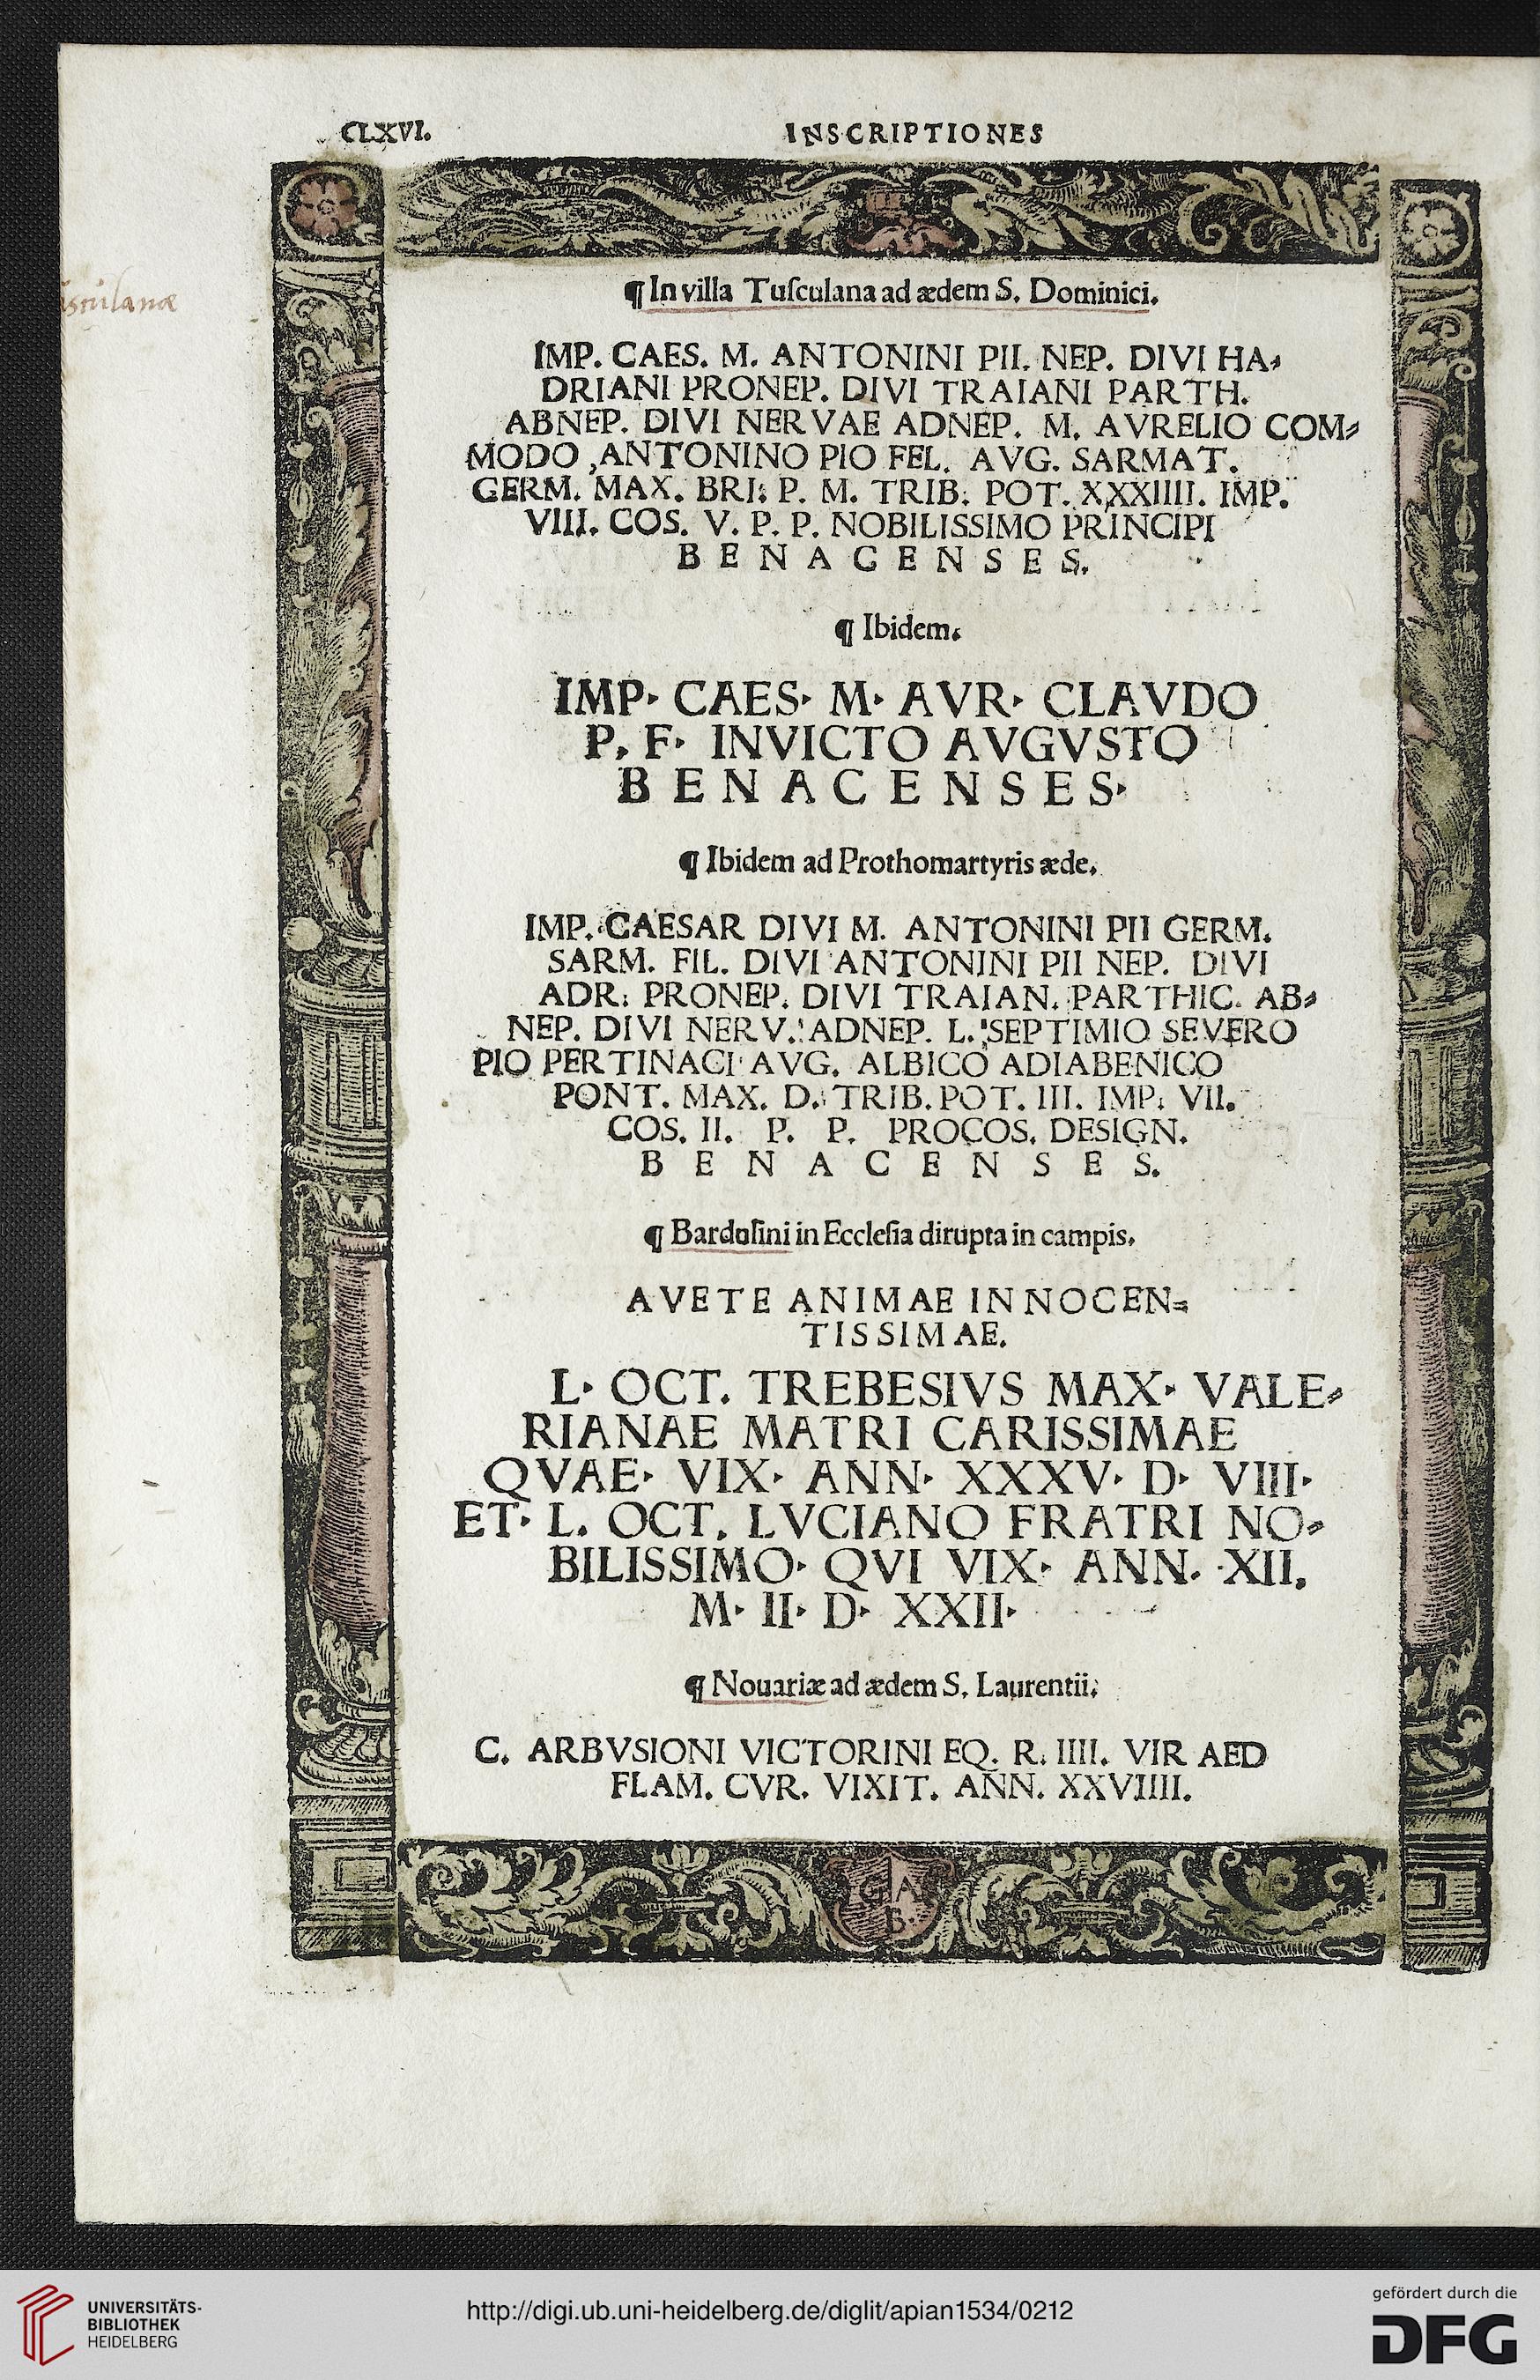 CLXVI.
INSCRIPTIONES
¶ In villa Tuſculana ad ædem S. Dominici.
IMP. CAES. M. ANTONINI PII. NEP. DIVI HA⸗
DRIANI PRONEP. DIVI TRAIANI PARTH.
ABNEP. DIVI NERVAE ADNEP. M. AVRELIO COM⸗
MODO ,ANTONINO PIO FEL. AVG. SARMAT.
GERM. MAX. BRI: P. M. TRIB. POT. XXXIIII. IMP.
VIII. COS. V. P. P. NOBILISSIMO PRINCIPI
BENAGENSES.
¶ Ibidem.
IMP· CAES· M· AVR· CLAVDO
P, F· INVICTO AVGVSTO
BENACENSES·
¶ Ibidem ad Prothomartyris æde.
IMP. CAESAR DIVI M. ANTONINI PII GERM.
SARM. FIL. DIVI ANTONINI PII NEP. DIVI
ADR: PRONEP. DIVI TRAIAN. PARTHIC. AB⸗
NEP. DIVI NERV. ADNEP. L. SEPTIMIO SEVERO
PIO PERTINACI AVG. ALBICO ADIABENICO
PONT. MAX. D. TRIB. POT. III. IMP: VII.
COS. II. P. P. PROCOS. DESIGN.
BENACENSES.
¶ Bardoſini in Eccleſia dirupta in campis.
AVETE ANIMAE INNOCEN⸗
TISSIMAE.
L· OCT. TREBESIVS MAX· VALE⸗
RIANAE MATRI CARISSIMAE
QVAE· VIX· ANN· XXXV· D· VIII·
ET· L. OCT. LVCIANO FRATRI NO⸗
BILISSIMO· QVI VIX· ANN. XII.
M· II· D· XXII·
¶ Nouariæ ad ædem S. Laurentii.
C. ARBVSIONI VICTORINI EQ. R. IIII. VIR AED
FLAM. CVR. VIXIT. ANN. XXVIIII.
G A
B
UNIVERSITÄTS-
BIBLIOTHEK
HEIDELBERG
http://digi.ub.uni-heidelberg.de/diglit/apian1534/0212
gefördert durch die
DFG